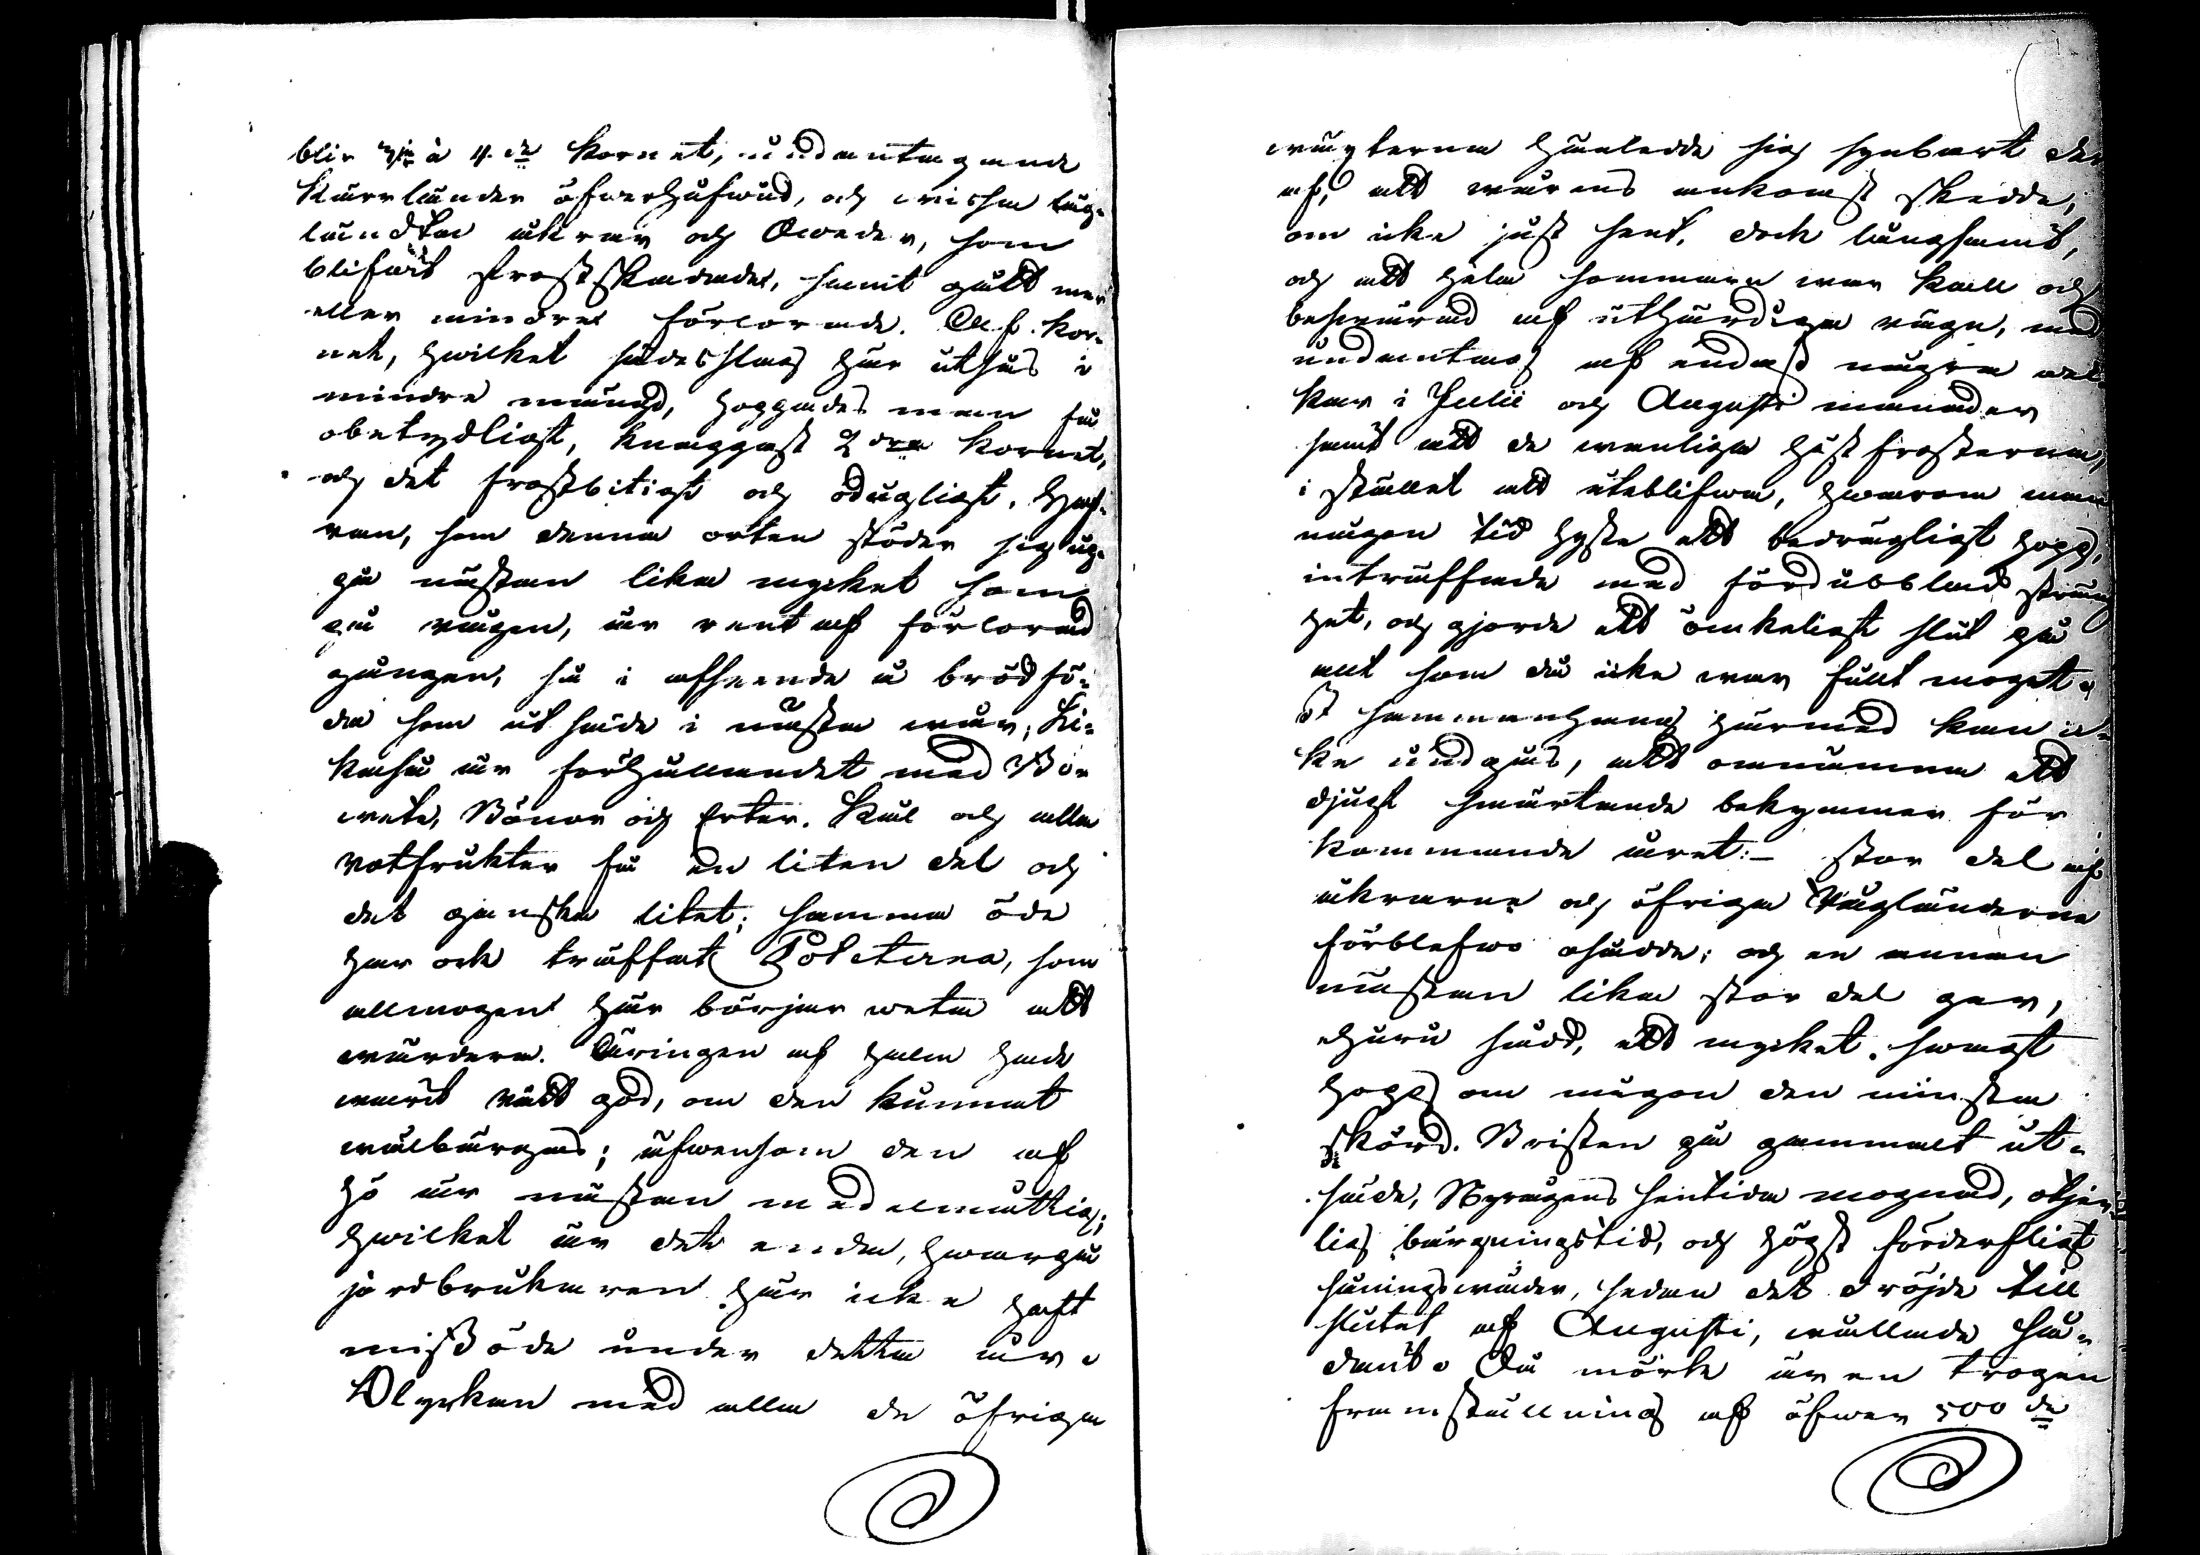 blir 3je à 4.de kornet, undantagande
Kärrländer öfwerhufwud, och wissa läg-
ländta åkrar och Sweder, som
blifwit frostskadade, samt gått mer
eller mindre förlorade. Af kor-
net, hwilket sädesslag här utsås i
mindre mängd, hoppades man få
obetydligt, knappast 2dra kornet,
och det frostbitigt och odugligt. Haf-
ran, som denna orten stöder sig up-
på nästan lika mycket som
på rågen, är rent af förlorad
gången, så i afseende å brödfö-
da som utsäde i nästa wår; Li-
kaså är förhållandet med Bo-
wete, Bönor och Erter. Kål och alla
rotfrukter få en liten del och
det ganska litet; samma öde
har ock träffat Poteterna, som
allmogen här börjar weta att
wärdera. Äringen af halm hade
warit rätt god, om den kunnat
wälbärgas; äfwensom den af
hö är nästan medelmåttig;
hwilket är det enda, hwarpå
jordbrukaren här icke haft
missöde under detta år.
Olyckan med alla de öfriga
wäxterna härledde sig synbart der
af, att wårens ankomst skedde,
om icke just sent, dock långsamt,
och att hela sommaren war kall och
beswärad af uthärdiga rägn, med
undantag af endast några wec
kor i Julii och Augusti månader
samt att de wanliga höstfrosterna,
i stället att uteblifwa, hwarom man
någon tid hyste ett bedrägligt hopp,
inträffade med fördubblad sträng
het, och gjorde ett ömkeligt slut på
allt som då icke war fullt moget.
I sammanhang härmed kan ic-
ke undgås, att omnämna ett
djupt smärtande bekymmer för
kommande året:- stor del af
åkrarne och öfriga Rågländerna
förblefwo osådde; och en annan
nästan lika stor del gaf,
ehuru sådd, ett mycket swagt
hopp om någon den minsta
skörd. Bristen på gammalt ut-
säde, Nyrågens sentida mognad, otjen
lig bärgningstid, och högst förderfligt
såningswäder, sedan det dröjde till
slutet af Augusti, wållade så-
dant. Du mörke är en trogen
framställning af öfwer 500 de